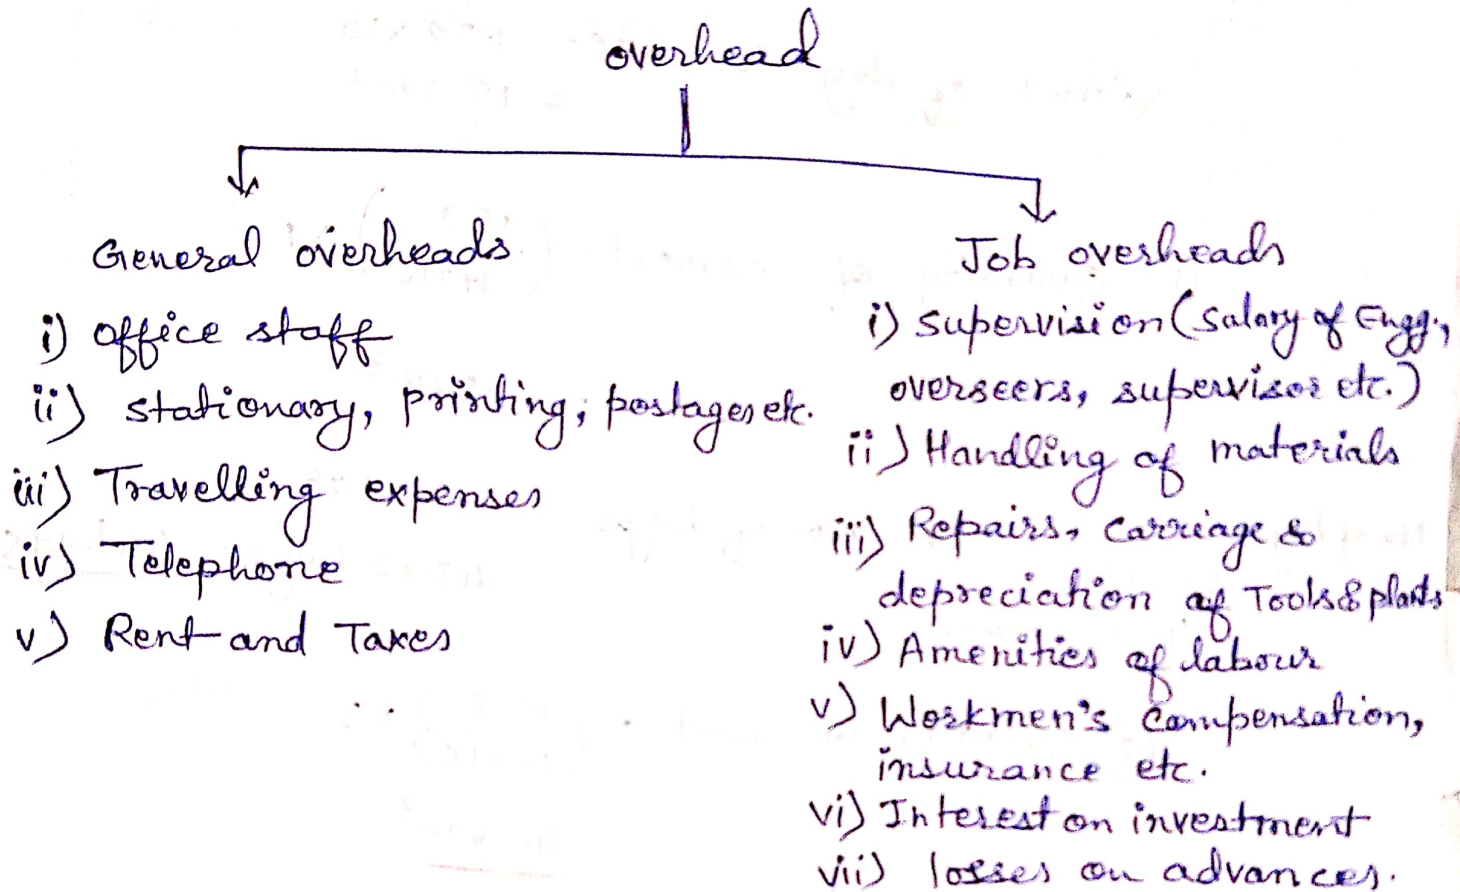 overhead
General overheads
i) office staff
ii) stationary, printing, postages etc.
iii) Travelling expenses
iv) Telephone
v) Rent and Taxes
Job overheads
i) supervision (salary of Engg.,
overseers, supervisor etc.)
ii) Handling of materials
iii) Repairs, carriage &
depreciation of Tools & plants
iv) Amenities of labour
v) Workmen's compensation,
insurance etc.
vi) Interest on investment
vii) losses on advances.